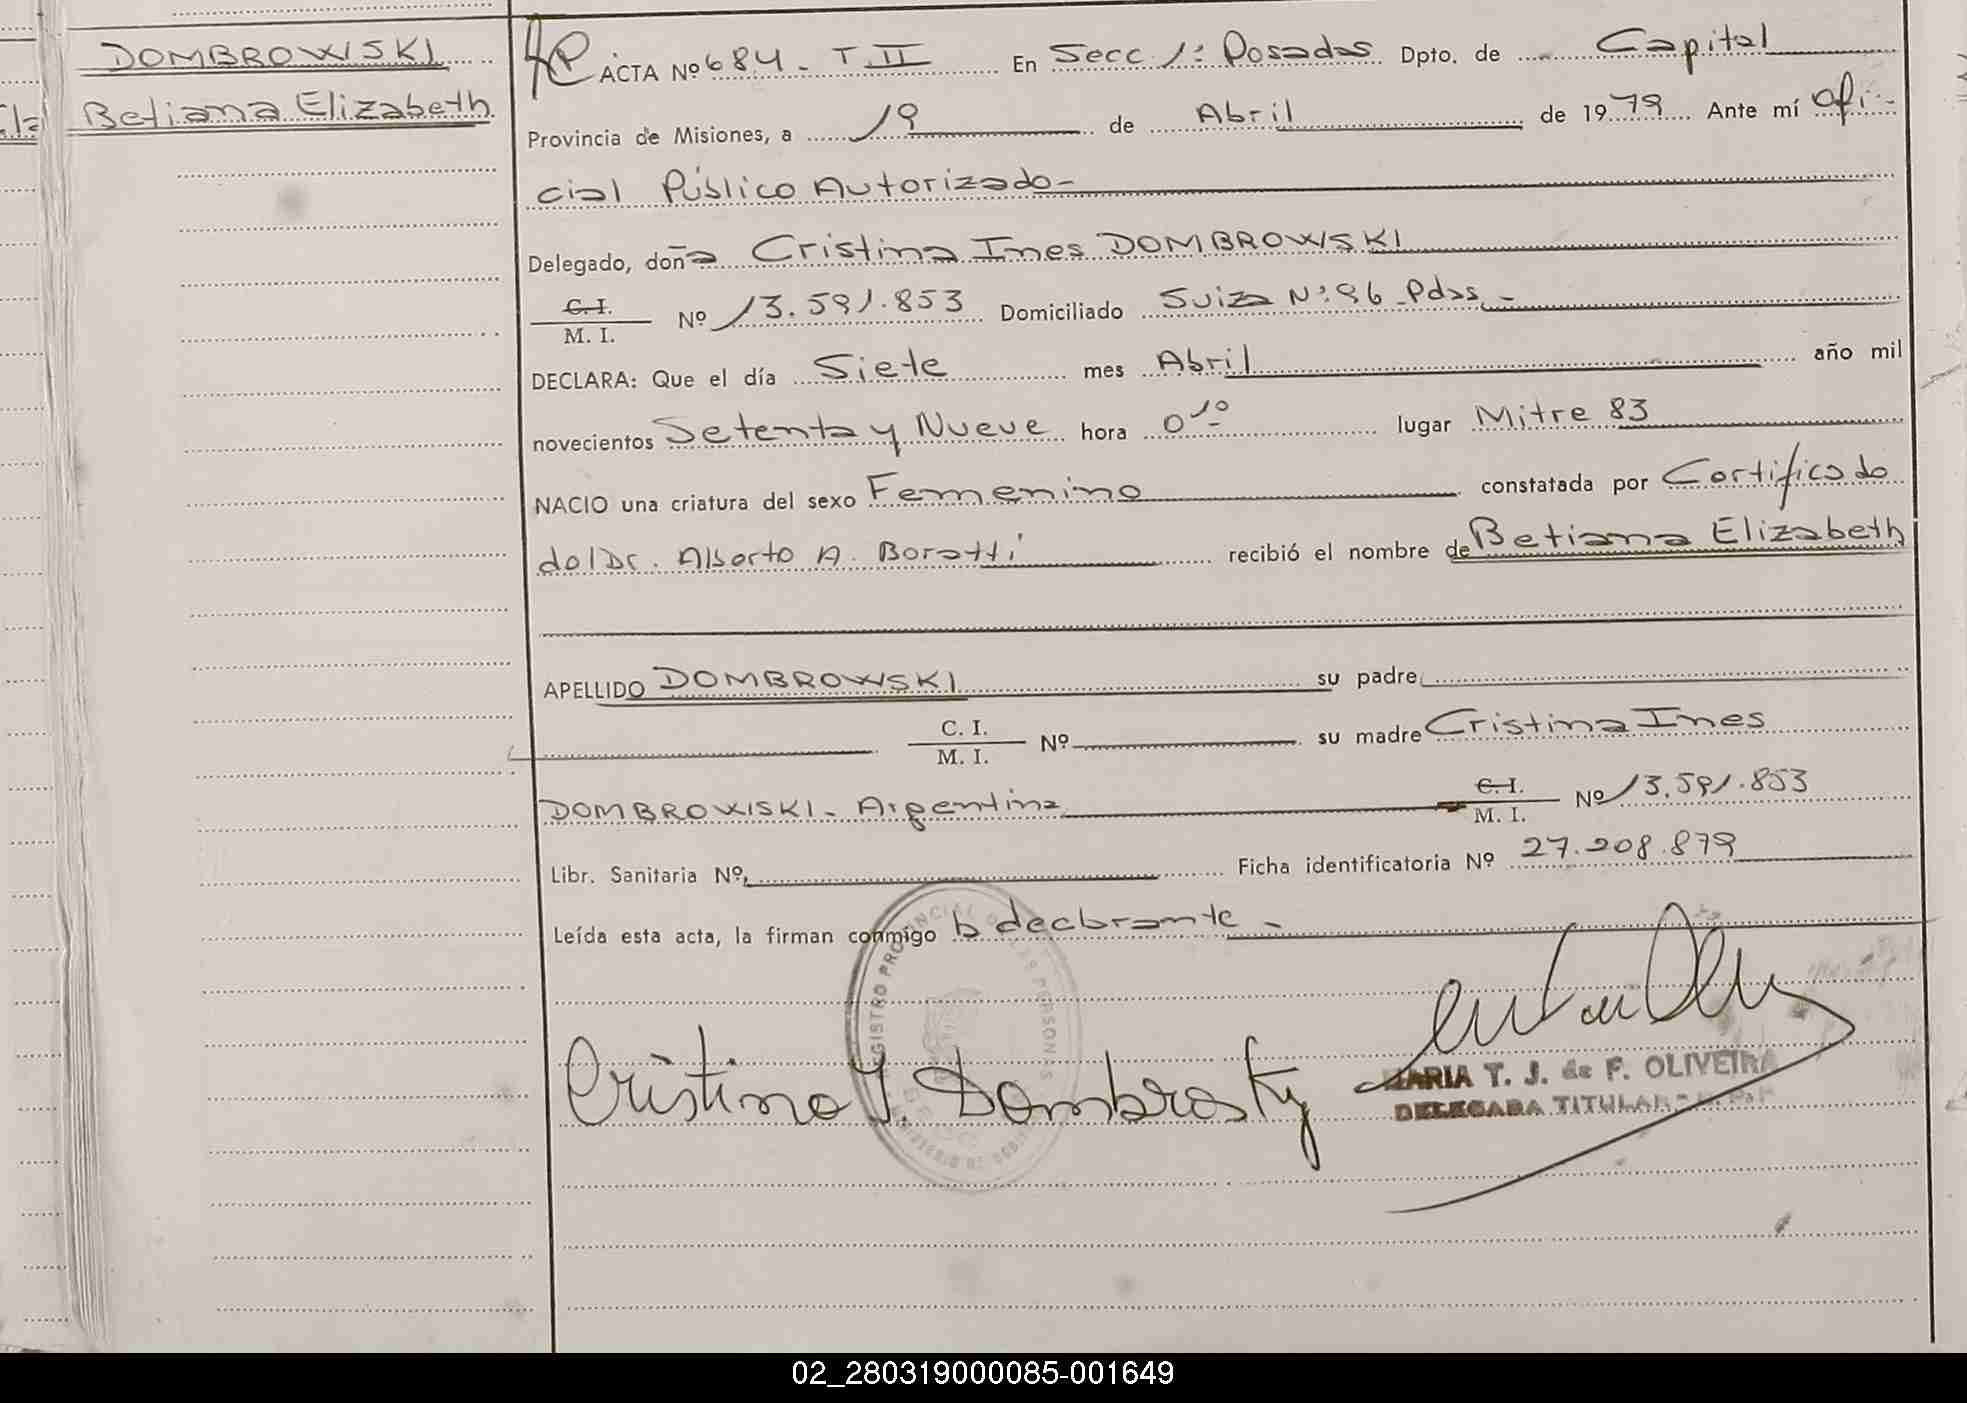 DOMBROWISKI
Betiana Elizabeth
ACTA Nº 684 - T II En Secc 1ª: Posadas Dpto. de Capital
Provincia de Misiones, a 19 de Abril de 1979 Ante mí Ofi-
cial Público Autorizado-
Delegado, doña Cristina Ines DOMBROWISKI
C. I.
M. I. Nº 13.591.853 Domiciliado Suiza Nº: 96 - Pdas. -
DECLARA: Que el día Siete mes Abril año mil
novecientos Setenta y Nueve hora 0¹⁰ lugar Mitre 83
NACIO una criatura del sexo Femenino constatada por Certificado
del Dr. Alberto A. Boratti recibió el nombre de Betiana Elizabeth
APELLIDO DOMBROWSKI su padre
C. I.
M. I. Nº su madre Cristina Ines
DOMBROWISKI - Argentina C. I.
M. I. Nº 13.591.853
Libr. Sanitaria Nº Ficha identificatoria Nº 27.208.879
Leída esta acta, la firman conmigo la declarante -
REGISTRO PROVINCIAL DE LAS PERSONAS
Cristina I. Dombrosky
MARIA T. J. de F. OLIVEIRA
DELEGADA TITULAR
02_280319000085-001649